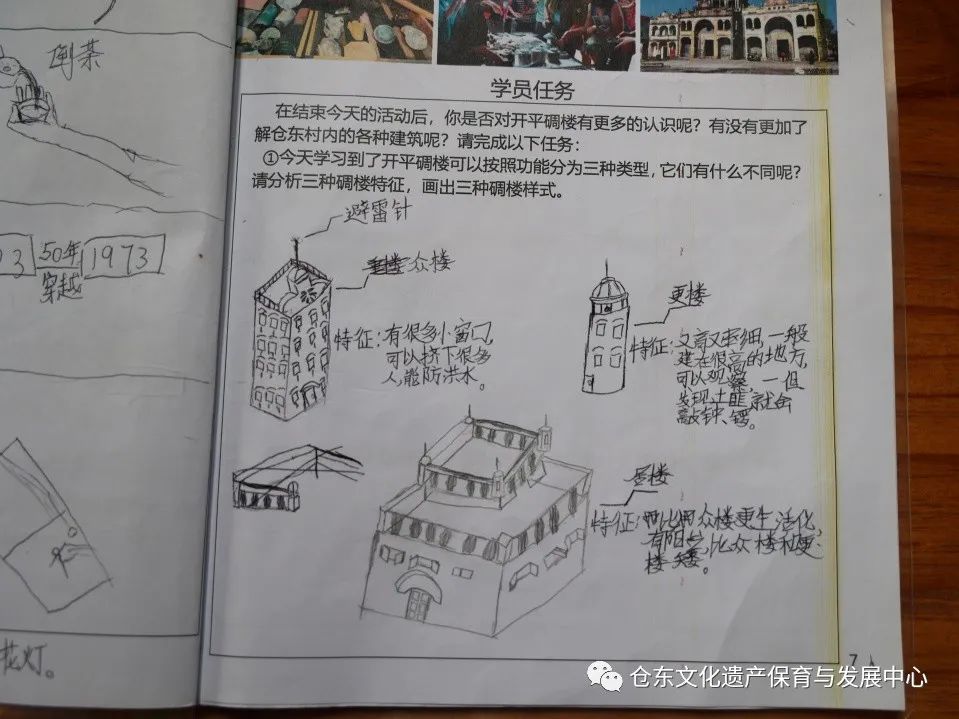 倒茶
50年
1973
穿越
花灯。
学员任务
在结束今天的活动后，你是否对开平碉楼有更多的认识呢？有没有更加了
解仓东村内的各种建筑呢？请完成以下任务：
①今天学习到了开平碉楼可以按照功能分为三种类型，它们有什么不同呢？
请分析三种碉楼特征，画出三种碉楼样式。
避雷针
众楼
特征：有很多小窗口，
可以挤下很多
人，能防洪水。
更楼
特征：又高又细，一般
建在很高的地方，
可以观察，一但
发现土匪，就会
敲钟、锣。
居楼
特征：比众楼更生活化，
有阳台，比众楼和更
楼矮。
7
仓东文化遗产保育与发展中心